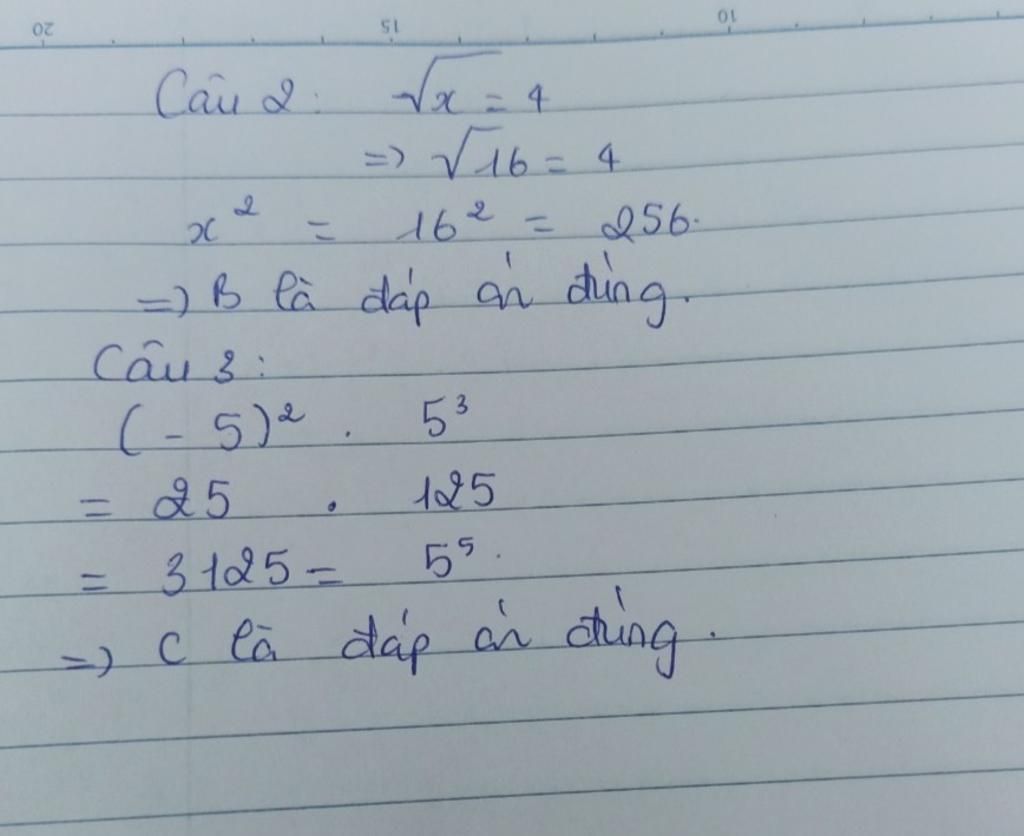 20 15 10
Câu 2: √x = 4
=> √16 = 4
x² = 16² = 256.
=> B là đáp án đúng.
Câu 3:
(-5)² . 5³
= 25 . 125
= 3125 = 5⁵.
=> C là đáp án đúng.